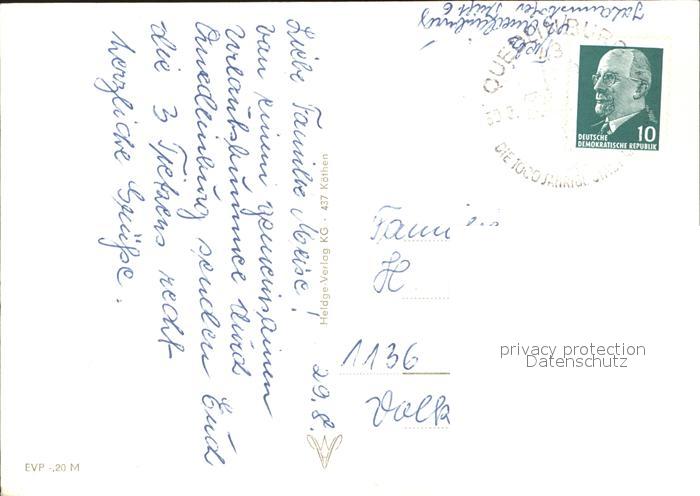 Liebe Familie Meise!
29.8.
Von einem gemeinsamen
Urlaubsbummel durch
Quedlinburg senden Euch
die 3 recht
herzliche Grüße.
Heldge-Verlag KG · 437 Köthen
EVP -,20 M
QUEDLINBURG
DIE 1000 JÄHRIGE
DEUTSCHE
DEMOKRATISCHE REPUBLIK
10
Fam
H.
1136
Volk
privacy protection
Datenschutz